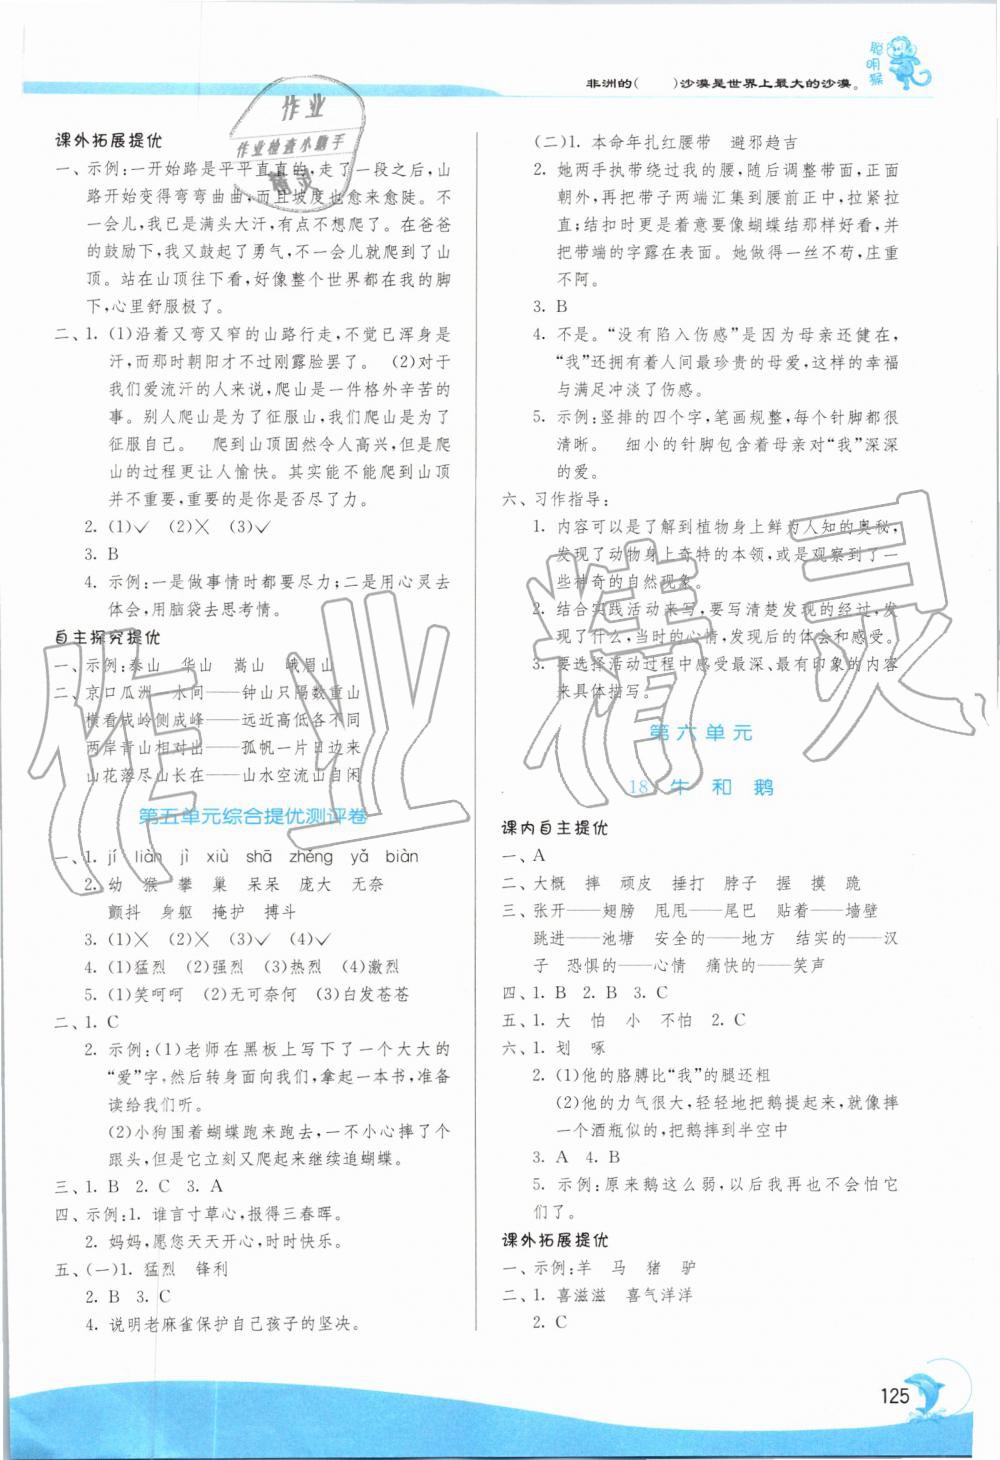 聪明猴
非洲的(　　)沙漠是世界上最大的沙漠。
作业
作业检查小助手
精灵
课外拓展提优
一、示例:一开始路是平平直直的,走了一段之后,山
路开始变得弯弯曲曲,而且坡度也愈来愈陡。不
一会儿,我已是满头大汗,有点不想爬了。在爸爸
的鼓励下,我又鼓起了勇气,不一会儿就爬到了山
顶。站在山顶往下看,好像整个世界都在我的脚
下,心里舒服极了。
二、1. (1)沿着又弯又窄的山路行走,不觉已浑身是
汗,而那时朝阳才不过刚露脸罢了。　(2)对于
我们爱流汗的人来说,爬山是一件格外辛苦的
事。别人爬山是为了征服山,我们爬山是为了
征服自己。　爬到山顶固然令人高兴,但是爬
山的过程更让人愉快。其实能不能爬到山顶
并不重要,重要的是你是否尽了力。
2. (1)✓　(2)✕　(3)✓
3. B
4. 示例:一是做事情时都要尽力;二是用心灵去
体会,用脑袋去思考。
自主探究提优
一、示例:泰山　华山　嵩山　峨眉山
二、京口瓜洲一水间——钟山只隔数重山
横看成岭侧成峰——远近高低各不同
两岸青山相对出——孤帆一片日边来
山花落尽山长在——山水空流山自闲
第五单元综合提优测评卷
一、1. jí　liàn　jì　xiù　shā　zhěng　yǎ　biàn
2. 幼　猴　攀　巢　呆呆　庞大　无奈
颤抖　身躯　掩护　搏斗
3. (1)✕　(2)✕　(3)✓　(4)✓
4. (1)猛烈　(2)强烈　(3)热烈　(4)激烈
5. (1)笑呵呵　(2)无可奈何　(3)白发苍苍
二、1. C
2. 示例:(1)老师在黑板上写下了一个大大的
“爱”字,然后转身面向我们,拿起一本书,准备
读给我们听。
(2)小狗围着蝴蝶跑来跑去,一不小心摔了个
跟头,但是它立刻又爬起来继续追蝴蝶。
三、1. B　2. C　3. A
四、示例:1. 谁言寸草心,报得三春晖。
2. 妈妈,愿您天天开心,时时快乐。
五、(一)1. 猛烈　锋利
2. B　3. C
4. 说明老麻雀保护自己孩子的坚决。
(二)1. 本命年扎红腰带　避邪趋吉
2. 她两手执带绕过我的腰,随后调整带面,正面
朝外,再把带子两端汇集到腰前正中,拉紧拉
直;结扣时更是着意要像蝴蝶结那样好看,并
把带端的字露在表面。她做得一丝不苟,庄重
不阿。
3. B
4. 不是。“没有陷入伤感”是因为母亲还健在,
“我”还拥有着人间最珍贵的母爱,这样的幸福
与满足冲淡了伤感。
5. 示例:竖排的四个字,笔画规整,每个针脚都很
清晰。　细小的针脚包含着母亲对“我”深深
的爱。
六、习作指导:
1. 内容可以是了解到植物身上鲜为人知的奥秘,
发现了动物身上奇特的本领,或是观察到了一
些神奇的自然现象。
2. 结合实践活动来写,要写清楚发现的经过,发
现了什么,当时的心情,发现后的体会和感受。
3. 要选择活动过程中感受最深、最有印象的内容
来具体描写。
第六单元
18　牛　和　鹅
课内自主提优
一、A
二、大概　摔　顽皮　捶打　脖子　握　摸　跪
三、张开——翅膀　甩甩——尾巴　贴着——墙壁
跳进——池塘　安全的——地方　结实的——汉
子　恐惧的——心情　痛快的——笑声
四、1. B　2. B　3. C
五、1. 大　怕　小　不怕　2. C
六、1. 划　啄
2. (1)他的胳膊比“我”的腿还粗
(2)他的力气很大,轻轻地把鹅提起来,就像摔
一个酒瓶似的,把鹅摔到半空中
3. A　4. B
5. 示例:原来鹅这么弱,以后我再也不会怕它
们了。
课外拓展提优
一、示例:羊　马　猪　驴
二、1. 喜滋滋　喜气洋洋
2. C
125
作业精灵